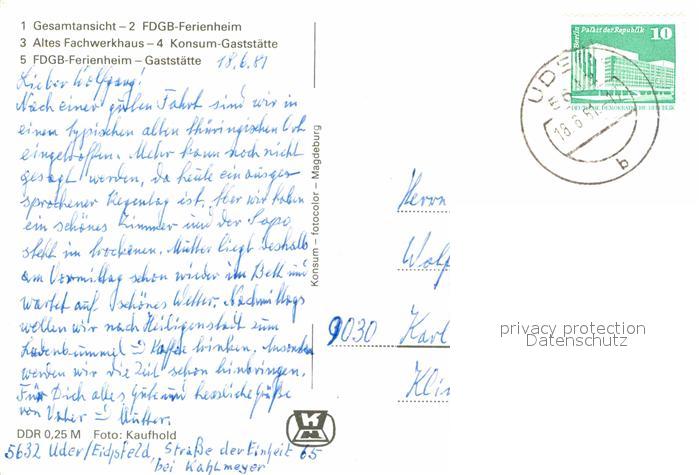 1 Gesamtansicht – 2 FDGB-Ferienheim
3 Altes Fachwerkhaus – 4 Konsum-Gaststätte
5 FDGB-Ferienheim – Gaststätte
18.6.81
Lieber Wolfgang!
Nach einer guten Fahrt sind wir in
einem typischen alten thüringischen Ort
eingetroffen. Mehr kann noch nicht
gesagt werden, da heute ein ausges-
prochener Regentag ist. Aber wir haben
ein schönes Zimmer und der Sapo
steht im trockenen. Mutter liegt deshalb
am Vormittag schon wieder im Bett und
wartet auf schönes Wetter. Nachmittags
wollen wir nach Heiligenstadt zum
Ladenbummel u. Kaffee trinken. Ansonsten
werden wir die Zeit schon hinbringen.
Für Dich alles Gute und herzliche Grüße
von Vater u. Mutter.
DDR 0,25 M Foto: Kaufhold
5632 Uder/Eichsfeld, Straße der Einheit 65
bei Kahlmeyer
Konsum – fotocolor – Magdeburg
Berlin Palast der Republik
10
DEUTSCHE DEMOKRATISCHE REPUBLIK
UDER
18.6.81
b
Herrn
Wolf
9030 Karl
Klin
privacy protection
Datenschutz